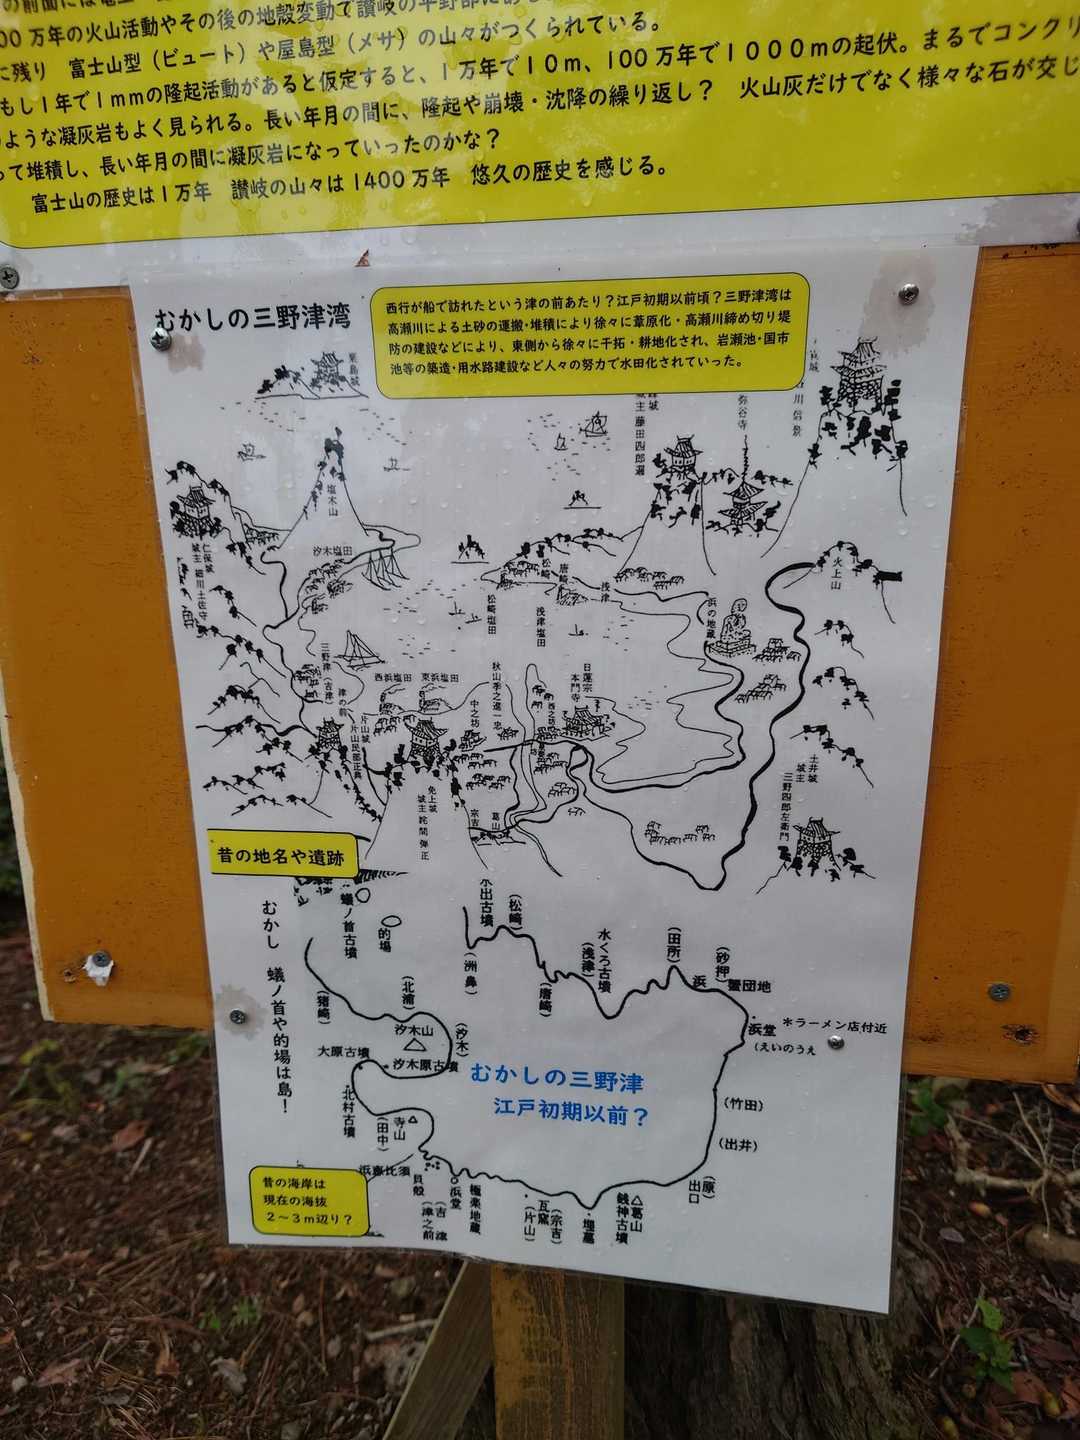 00万年の火山活動やその後の地殻変動で讃岐の平野部に
に残り 富士山型（ビュート）や屋島型（メサ）の山々がつくられている。
もし1年で1mmの隆起活動があると仮定すると、1万年で10m、100万年で1000mの起伏。まるでコンクリ
のような凝灰岩もよく見られる。長い年月の間に、隆起や崩壊・沈降の繰り返し？ 火山灰だけでなく様々な石が交じ
って堆積し、長い年月の間に凝灰岩になっていったのかな？
富士山の歴史は1万年 讃岐の山々は1400万年 悠久の歴史を感じる。
むかしの三野津湾
西行が船で訪れたという津の前あたり？江戸初期以前頃？三野津湾は
高瀬川による土砂の運搬・堆積により徐々に葦原化・高瀬川締め切り堤
防の建設などにより、東側から徐々に干拓・耕地化され、岩瀬池・国市
池等の築造・用水路建設など人々の努力で水田化されていった。
粟島城
城
川信景
弥谷寺
城
城主 藤田四郎
塩木山
汐木塩田
仁保城
城主 細川土佐守
松崎
唐崎
浅津
火上山
松崎塩田
浅津塩田
浜の地蔵
三野津（吉津）
津の前
西浜塩田
東浜塩田
秋山
中之坊
西之坊
日蓮宗
本門寺
片山城
片山民部正
土井城
城主
三野四郎左衛門
免上城
城主 詫間弾正
宗吉
葛山
昔の地名や遺跡
むかし 蟻ノ首や的場は島！
蟻ノ首古墳
的場
水出古墳
（松崎）
（洲鼻）
水くろ古墳
（浅津）
（唐崎）
（田所）
（砂押）
浜
蟹団地
浜堂
＊ラーメン店付近
（えいのうえ
（猪崎）
（北浦）
（汐木）
汐木山
大原古墳
汐木原古墳
むかしの三野津
江戸初期以前？
北村古墳
（田中）
寺山
（竹田）
（出井）
（原）
出口
浜喜比須
昔の海岸は
現在の海抜
2～3m辺り？
貝殻
（津之前
吉津
浜堂
極楽地蔵
（片山）
瓦窯
（宗吉）
埋墓
銭神古墳
葛山